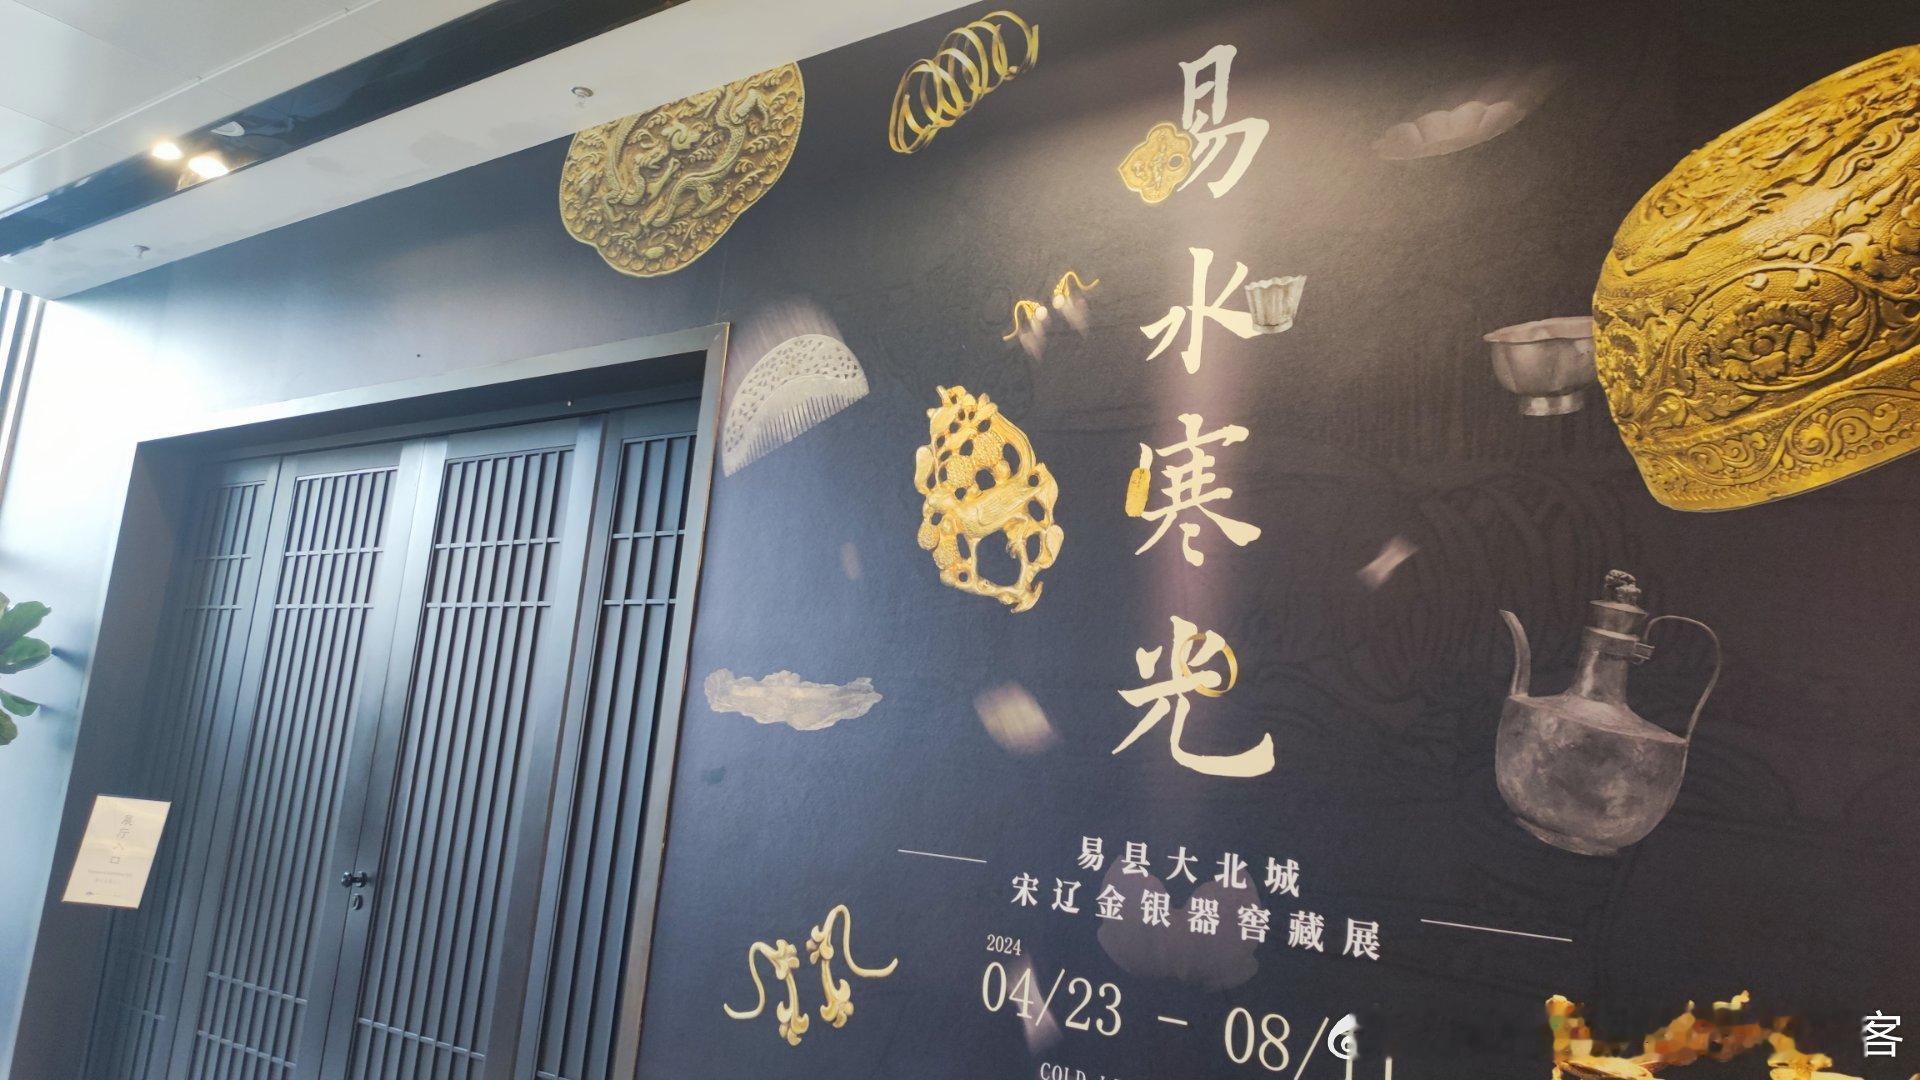 易水寒光
易县大北城
宋辽金银器窖藏展
2024
04/23 - 08/11
COLD
展厅入口
客